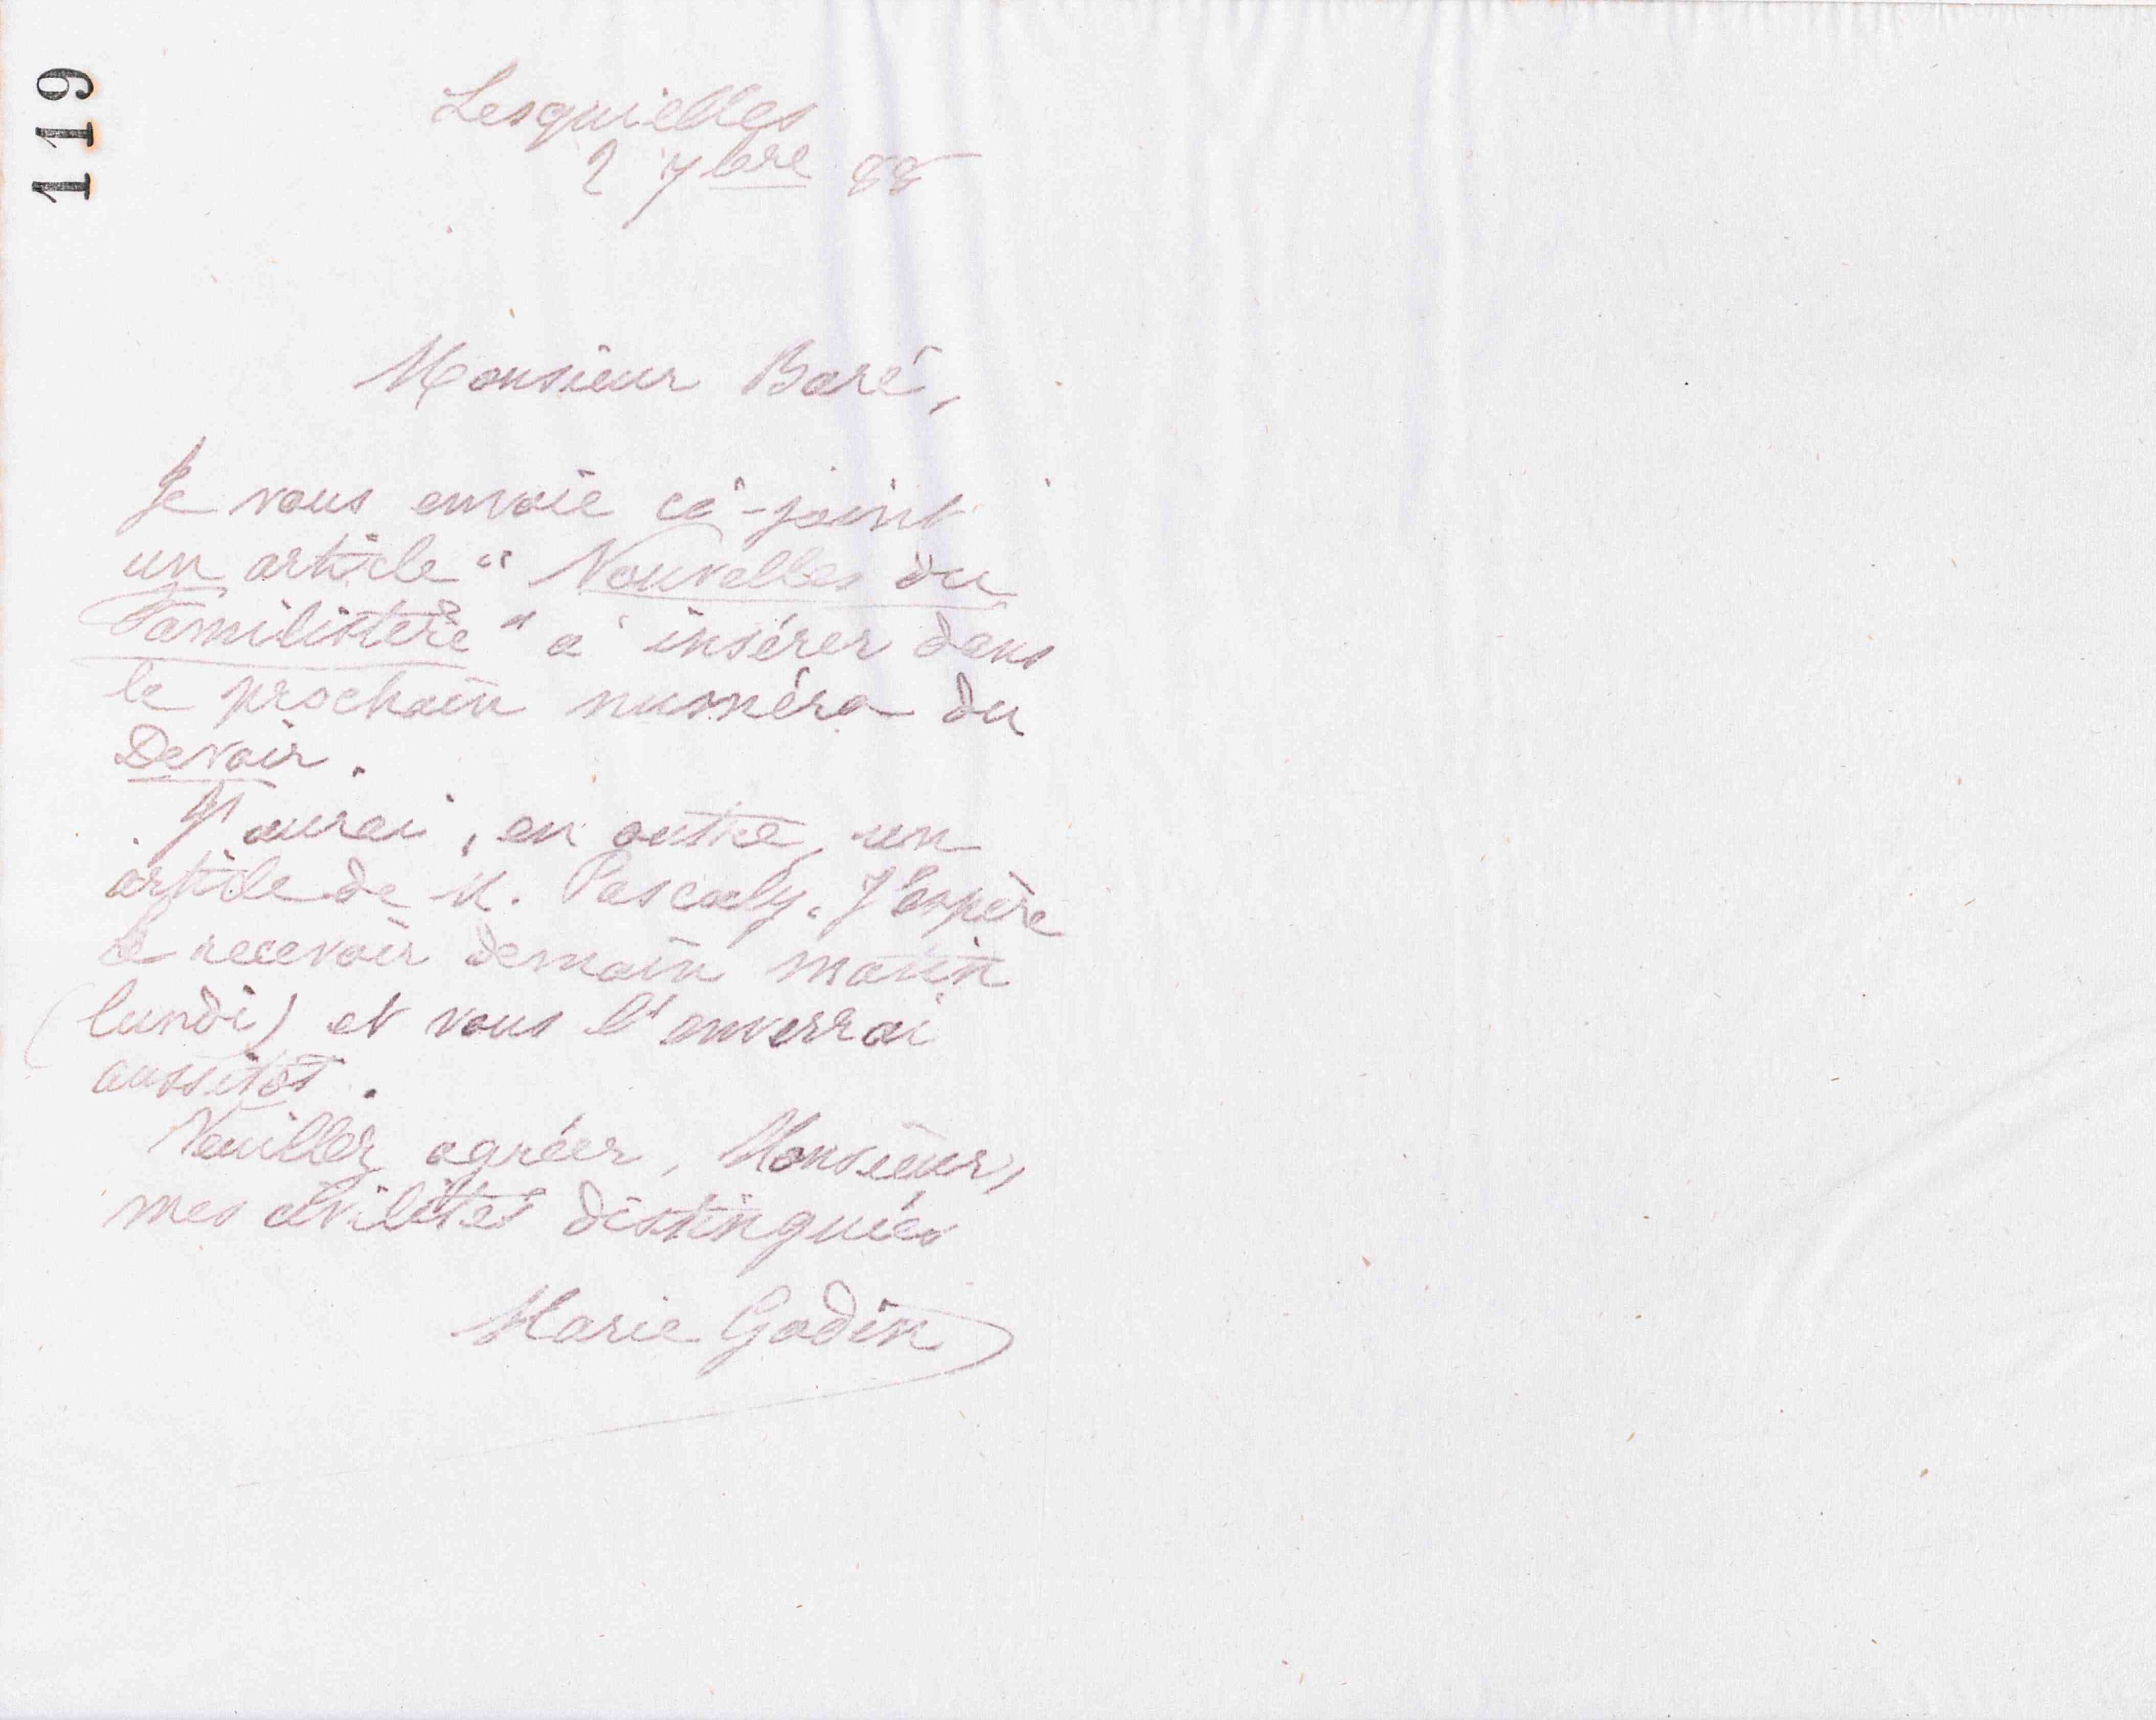 119
Lesquielles
2 7bre 88
Monsieur Baré,
Je vous envoie ci-joint
un article "Nouvelles du
Familistère" à insérer dans
le prochain numéro du
Devoir.
J'aurai, en outre, un
article de M. Pascaly. J'espère
le recevoir demain matin
(lundi) et vous l'enverrai
aussitôt.
Veuillez agréer, Monsieur,
mes civilités distinguées
Marie Godin